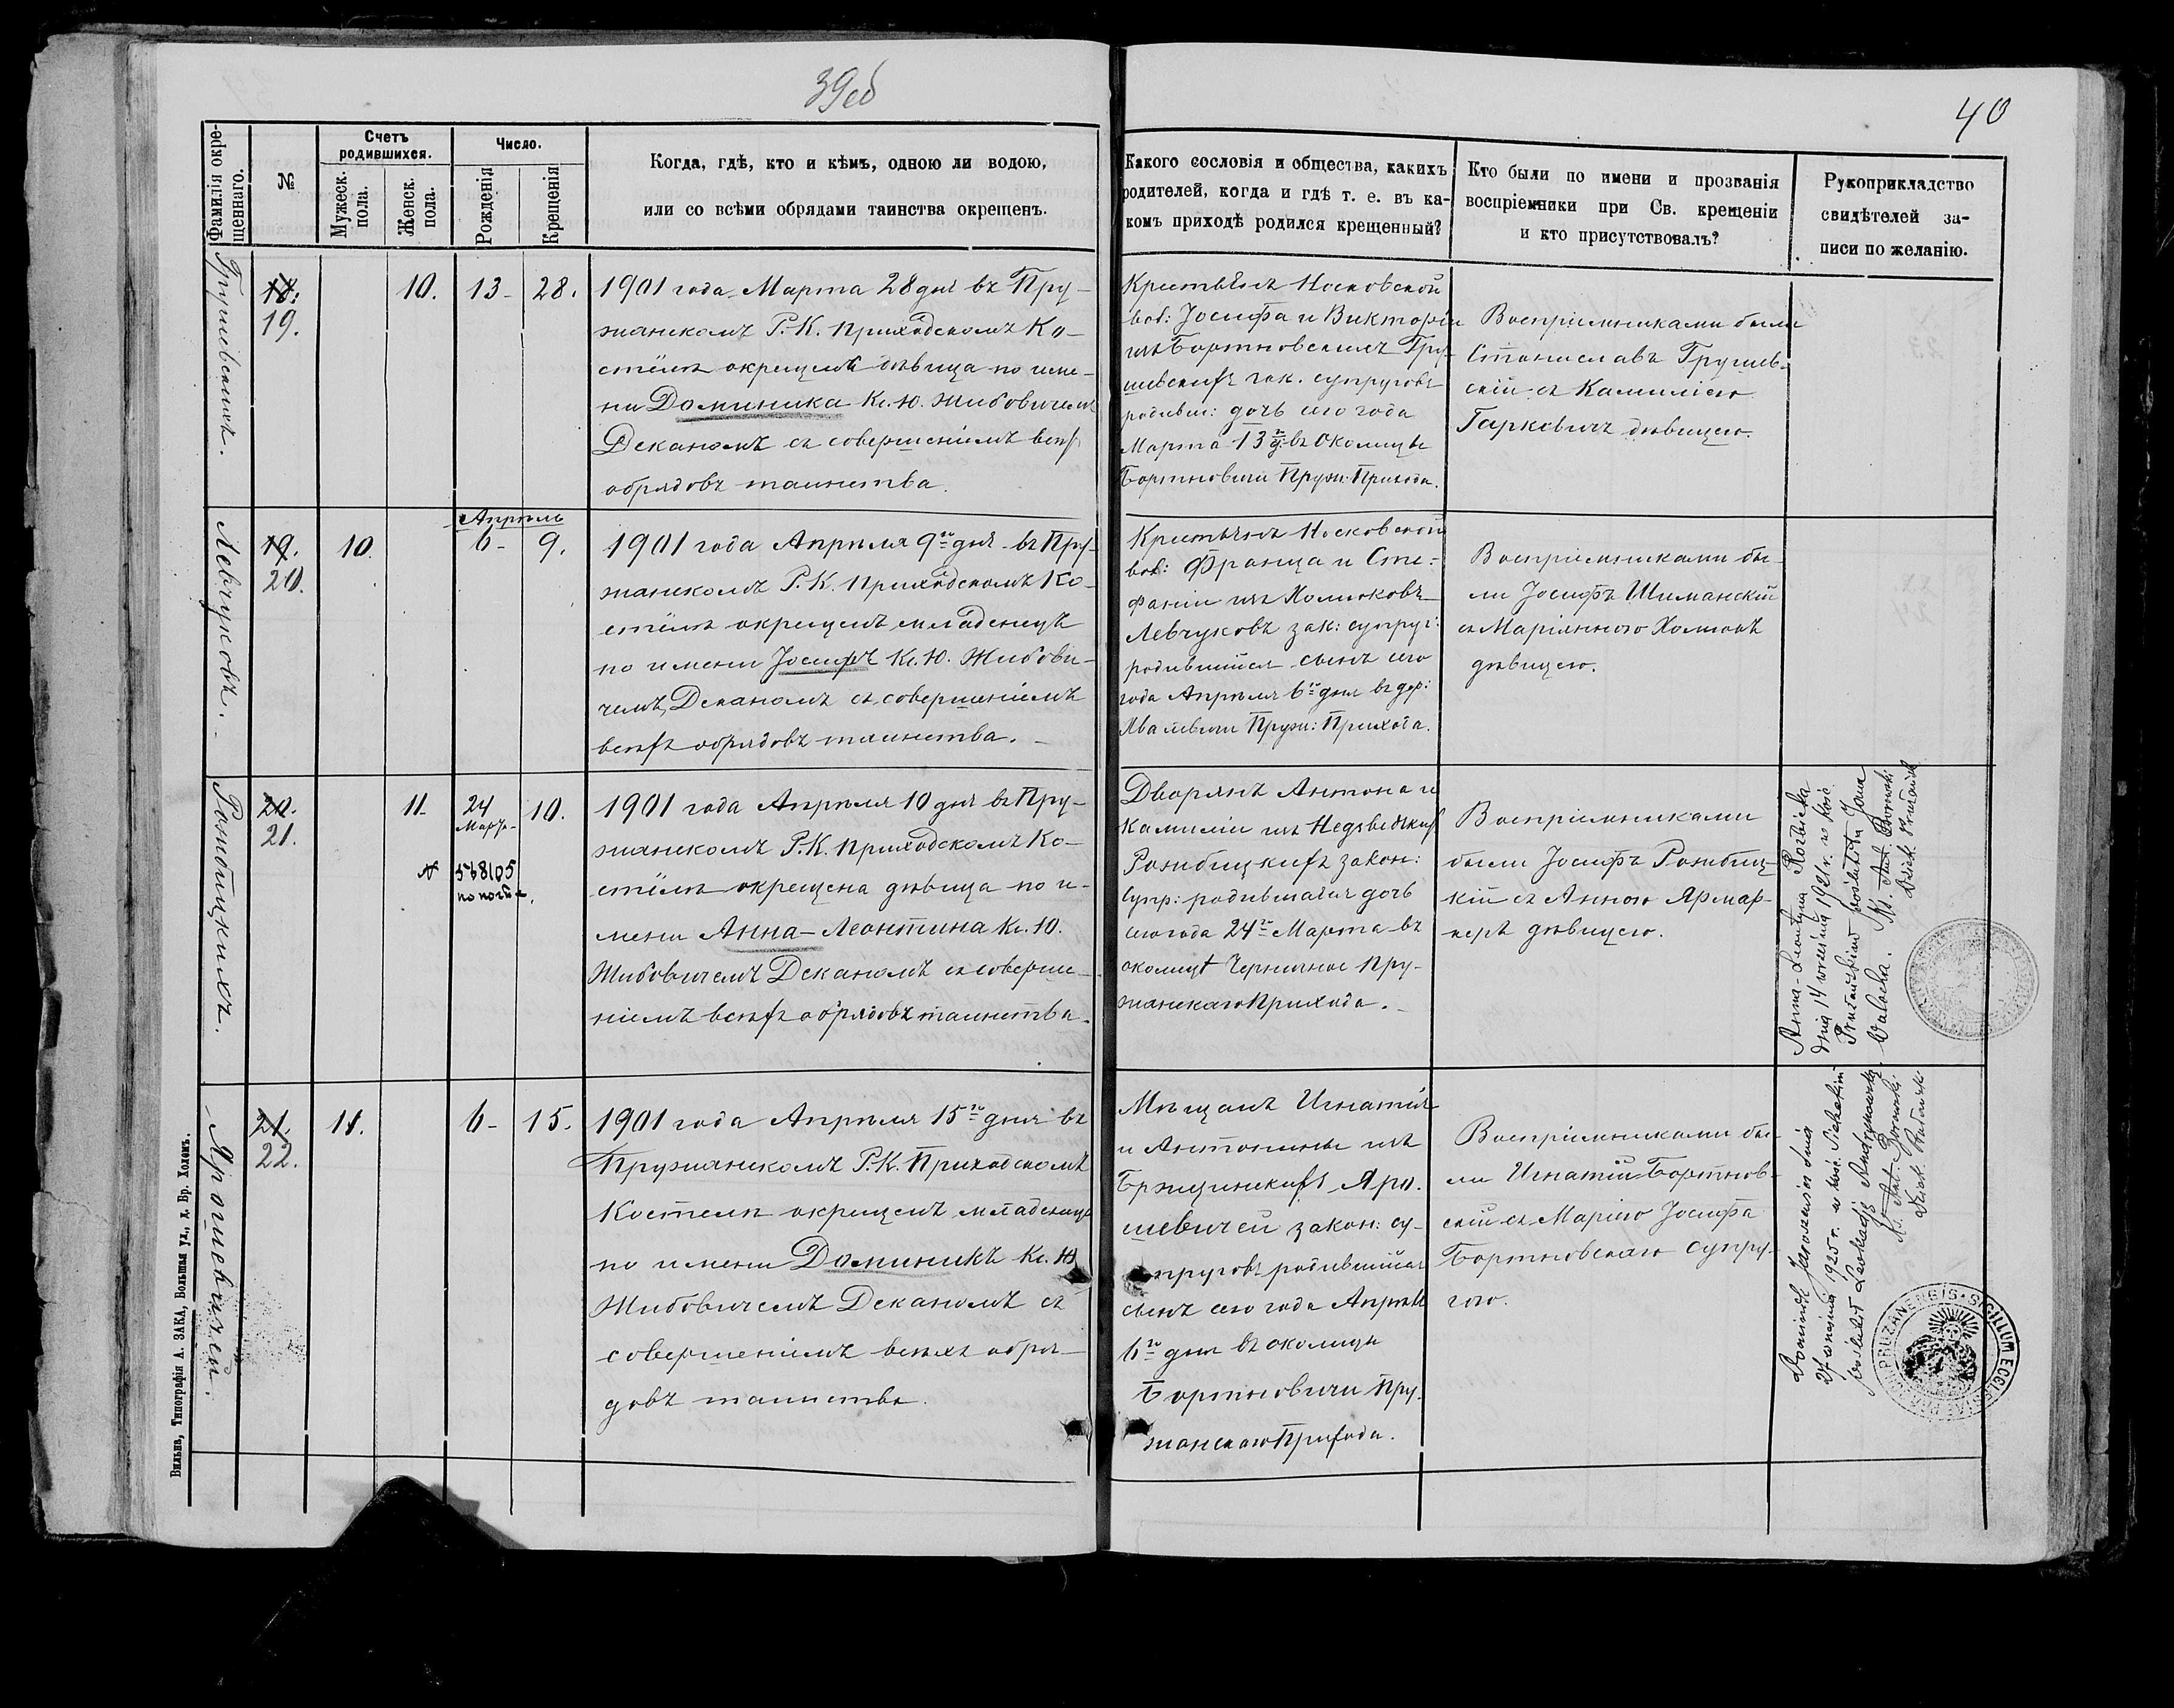 39об
40
Фамилія окре-
щеннаго.
№
Счетъ
родившихся.
Мужеск.
пола.
Женск.
пола.
Число.
Рожденія
Крещенія
Когда, гдѣ, кто и кѣмъ, одною ли водою,
или со всѣми обрядами таинства окрещенъ.
Какого сословія и общества, какихъ
родителей, когда и гдѣ т. е. въ ка-
комъ приходѣ родился крещенный?
Кто были по имени и прозванія
воспріемники при Св. крещеніи
и кто присутствовалъ?
Рукоприкладство
свидѣтелей за-
писи по желанію.
Грушевскихъ.
18.
19.
10.
13-
28.
1901 года Марта 28 дня въ Пру-
жанскомъ Р.К. Приходскомъ Ко-
стёлѣ окрещена дѣвица по име-
ни Доминика Кс. Ю. Жибовичемъ
Деканомъ съ совершеніемъ всѣхъ
обрядовъ таинства.
Крестьянъ Носковской
вол: Іосифа и Викторіи
изъ Бортновскихъ Гру-
шевскихъ зак. супруговъ
родивш: дочь сего года
Марта 13 го д. въ околицѣ
Бортновичи Пруж: Прихода.
Воспріемниками были
Станиславъ Грушев-
скій съ Камиліею
Гаркевичъ дѣвицею.
Левчуковъ.
19.
20.
10.
Апрѣль
6-
9.
1901 года Апрѣля 9го дня въ Пру-
жанскомъ Р.К. Приходскомъ Ко-
стёлѣ окрещенъ младенецъ
по имени Іосифъ Кс. Ю. Жибови-
чемъ, Деканомъ съ совершеніемъ
всѣхъ обрядовъ таинства.
Крестьянъ Носковской
вол: Франца и Сте-
фаніи изъ
Левчуковъ зак: супруг:
родившійся сынъ сего
года Апрѣля 6го дня въ дер:
Пруж: Прихода.
Воспріемниками бы-
ли Іосифъ Шиманскій
съ Маріянною
дѣвицею.
Рокобицкихъ.
20.
21.
11.
24
Марта-
10.
№ 568105
1901 года Апрѣля 10 дня въ Пру-
жанскомъ Р.К. Приходскомъ Ко-
стёлѣ окрещена дѣвица по и-
мени Анна-Леонтина Кс. Ю.
Жибовичемъ Деканомъ съ соверше-
ніемъ всѣхъ обрядовъ таинства.
Дворянъ Антона и
Камиліи изъ Недзведзкихъ
закон:
Супр: родившаяся дочь
сего года 24го Марта въ
околицѣ Черничное Пру-
жанскаго Прихода.
Воспріемниками
были Іосифъ
кій съ Анною
дѣвицею.
Anna-Leontyna
dnia 14 września 1921 r. w koś.
Prużańskim poślubiła Jana
Walocha. Ks. Ant. Borowski
Dziek. Prużański
Ярошевичей.
21.
22.
11.
6-
15.
1901 года Апрѣля 15го дня въ
Пружанскомъ Р.К. Приходскомъ
Костелѣ окрещенъ младенецъ
по имени Доминикъ Кс. Ю.
Жибовичемъ Деканомъ съ
совершеніемъ всѣхъ обря-
довъ таинства.
Мѣщанъ Игнатія
и Антонины изъ
Бржзинскихъ Яро-
шевичей закон: су-
пруговъ родившійся
сынъ сего года Апрѣля
6го дня въ околицѣ
Бортновичи Пру-
жанскаго Прихода.
Воспріемниками бы-
ли Игнатій Бортнов-
скій съ Маріею Іосифа
Бортновскаго супру-
гою.
Dominik Jaroszewicz dnia
1925 r. w koś.
poślubił Leokadję
Ks. Ant. Borowski
Dziek. Prużański
PRUZANENSIS · SIGILLUM ECCLESIAE PAR
Вильна, Типографія А. ЗАКА, Большая ул., д. Бр. Холемъ.